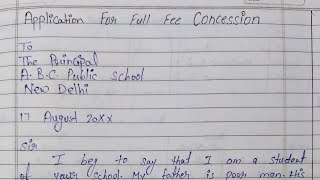 Application For Full Fee Concession
To
The Principal
A.B.C. Public School
New Delhi
17 August 20XX
Sir
I beg to say that I am a student
of your school. My father is poor man. His